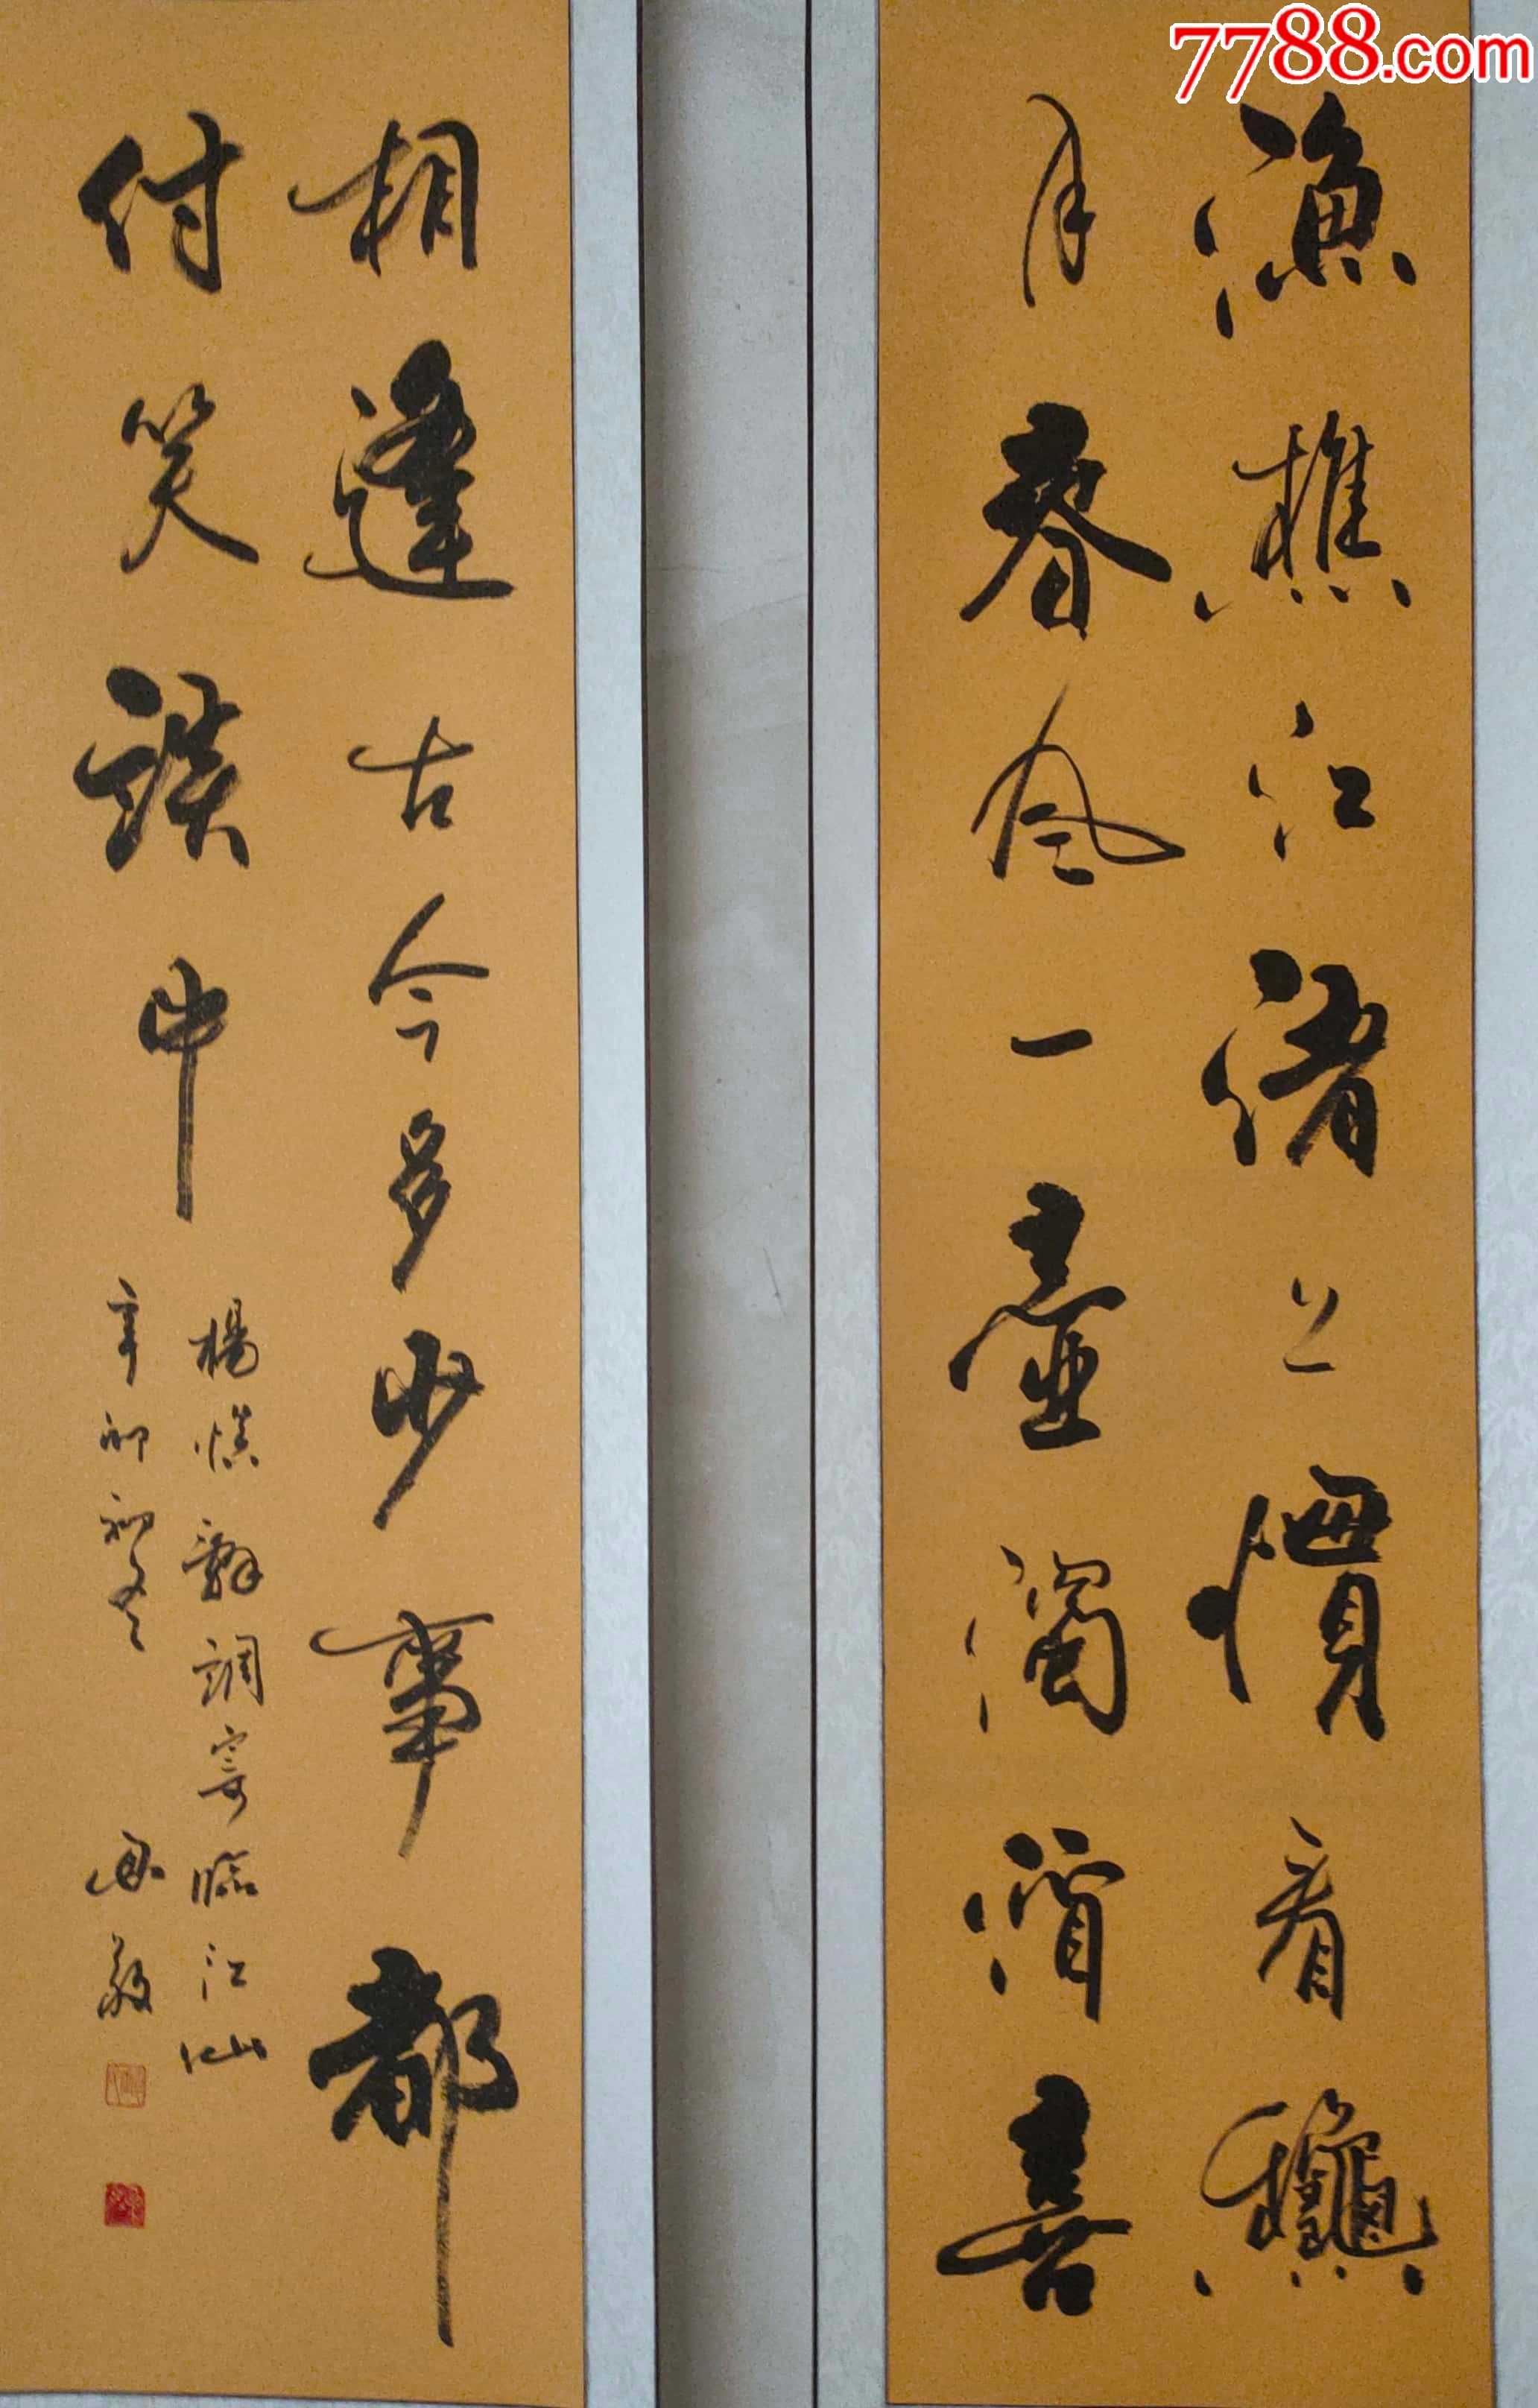 7788.com
漁樵江渚上慣看龝
月春風一壺濁酒喜
相逢古今多少事都
付笑談中
楊慎辭調寄臨江仙
辛卯初冬